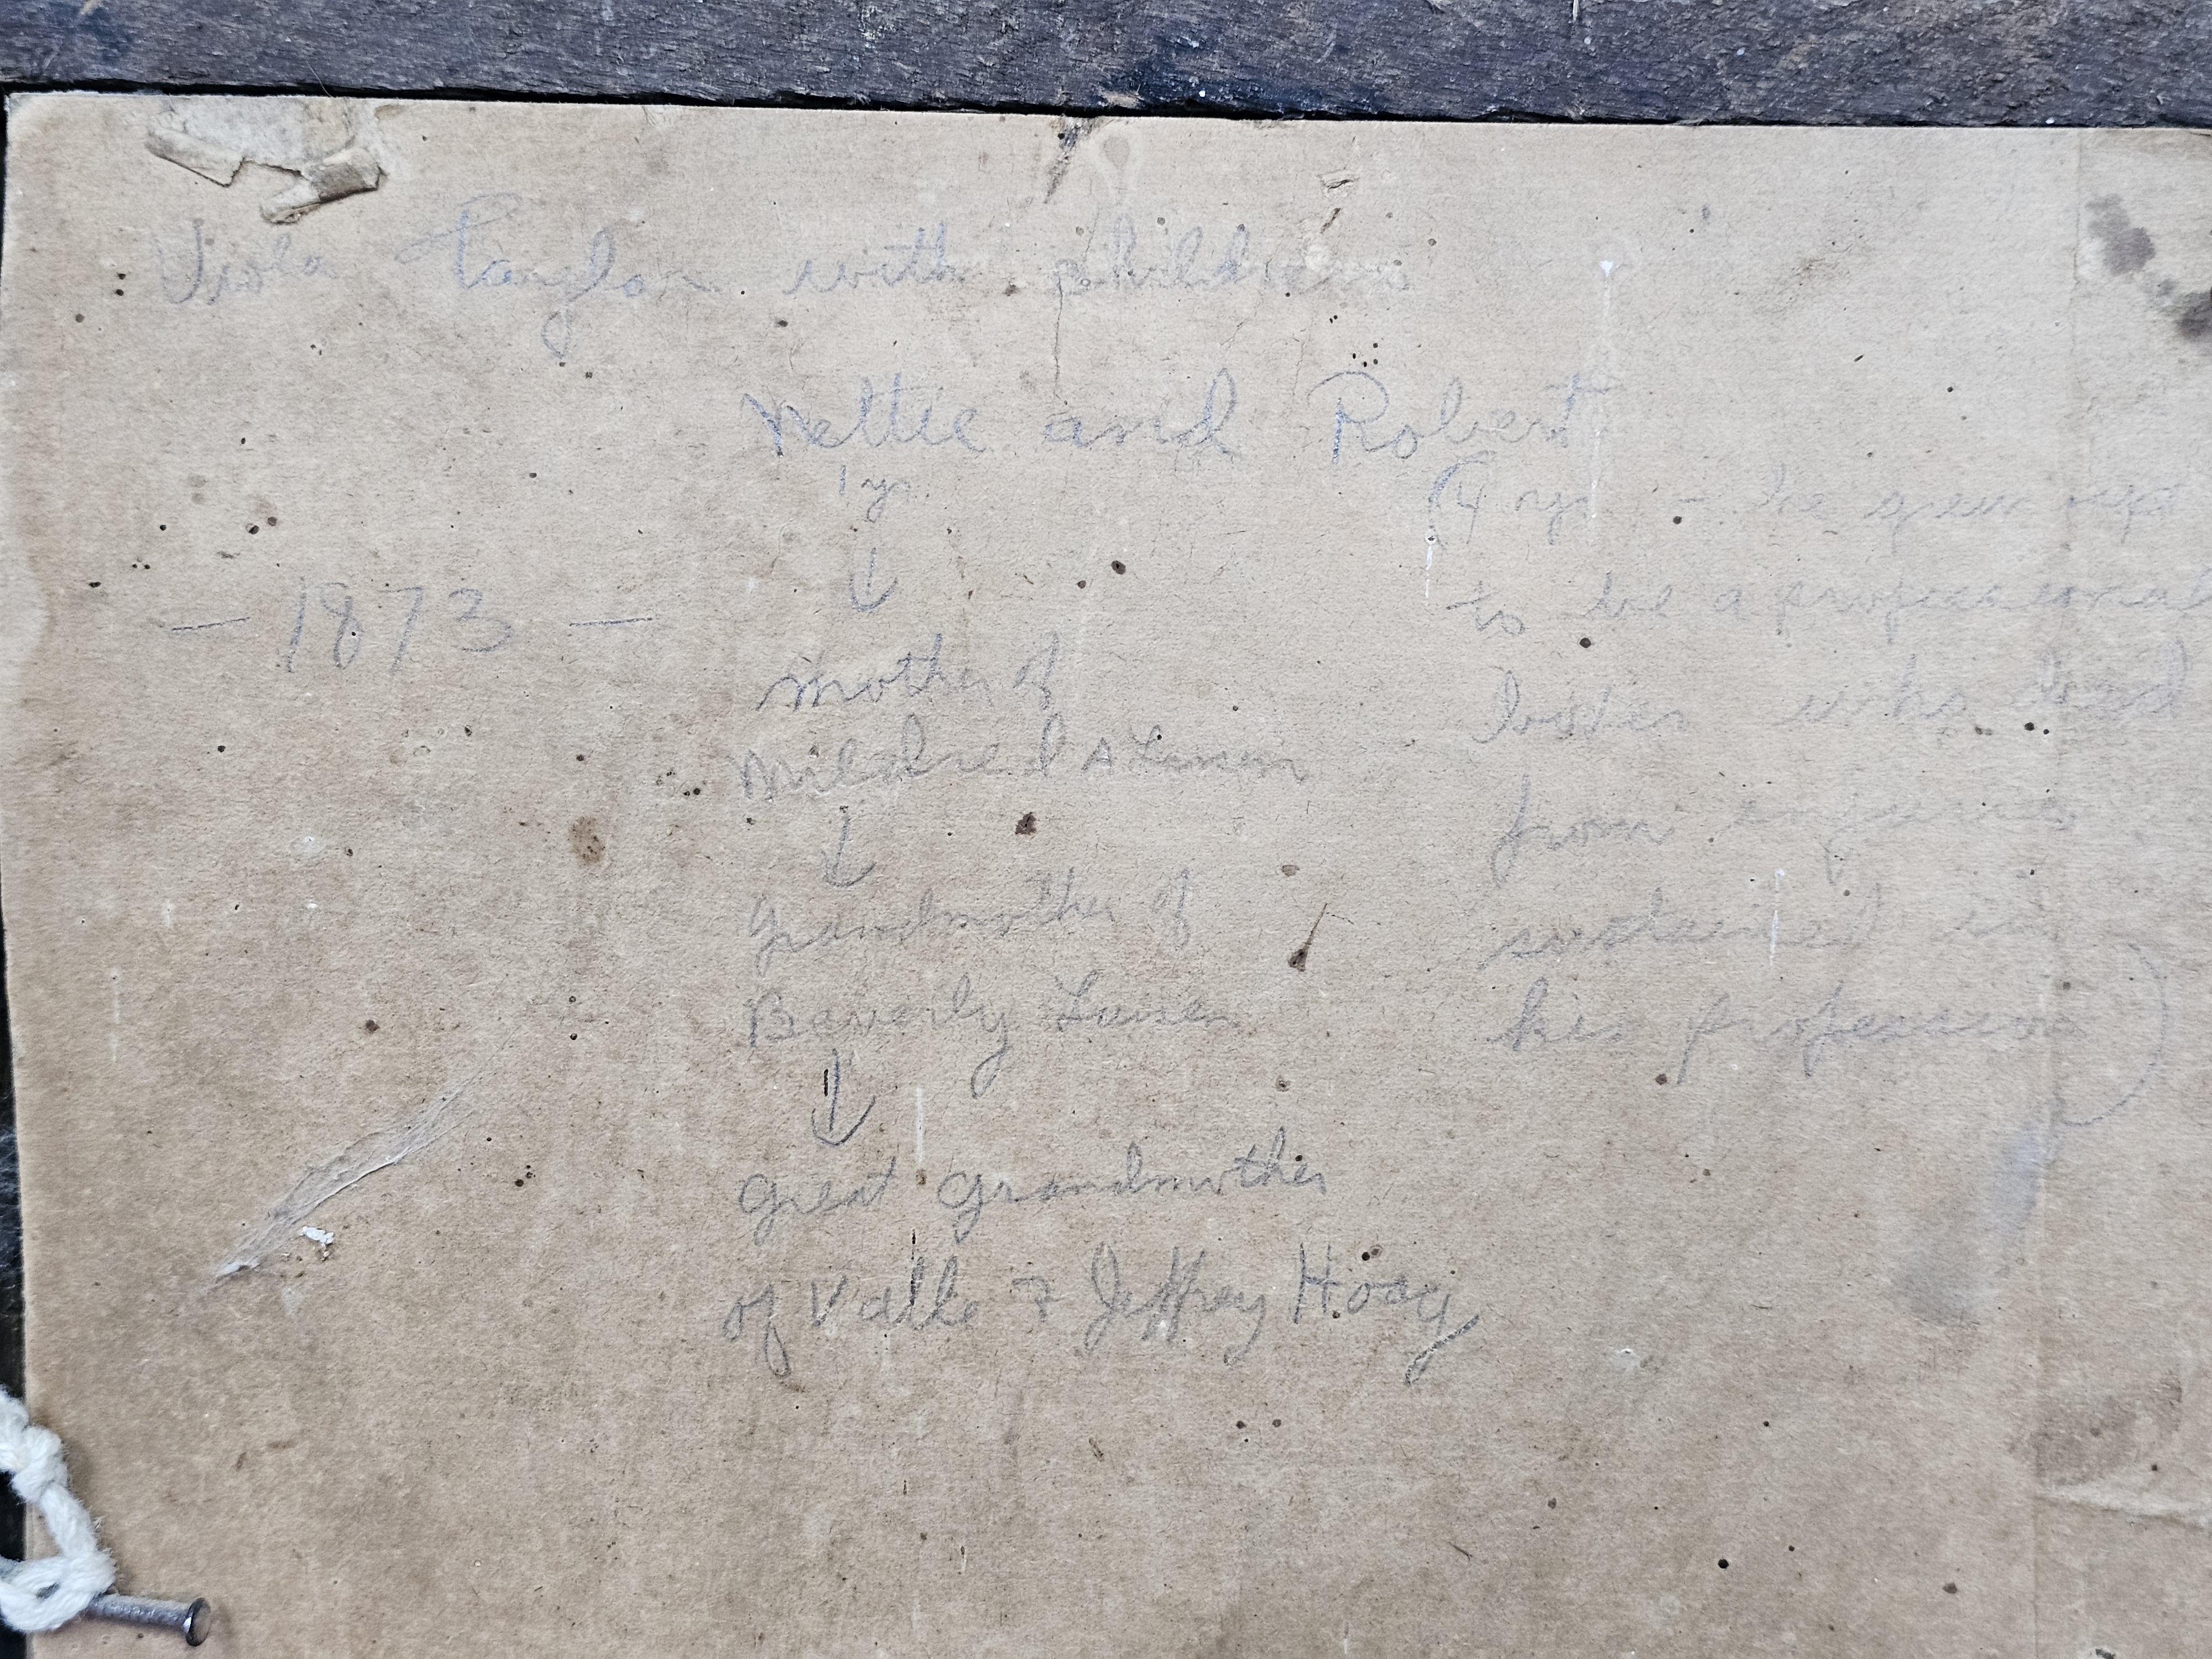 Viola Taylor with children
Nettie and Robert
1 yr.
- 1873 -
Mother of
Mildred A Larsen
Grandmother of
Beverly Larsen
Great Grandmother
of & Jeffrey Hoag
(4 yr - he grew up
to be a professional
boxer who died
from injuries
sustained in
his profession)